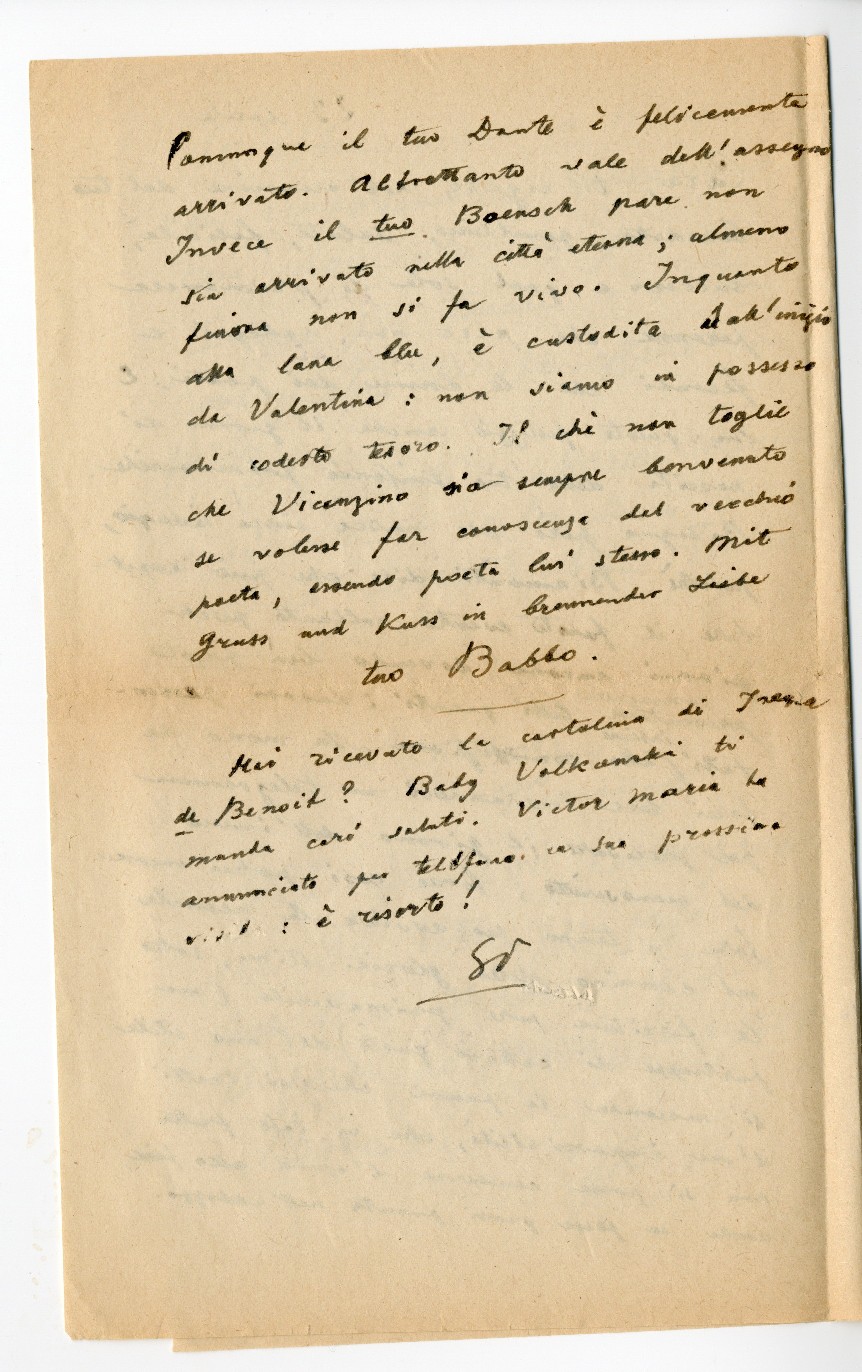 il tuo Dante è felicemente
arrivato. Altrettanto vale dell'assegno
Invece il tuo Boensch pare non
sia arrivato nella città eterna; almeno
finora non si fa vivo. Inquanto
alla lana blu, è custodita dall'inizio
da Valentina: non siamo in possesso
di codesto tesoro. Il chè non toglie
che Vicenzino sia sempre benvenuto
se volesse far conoscenza del vecchio
poeta, essendo poeta lui stesso. Mit
Gruss und Kuss in brennender Liebe
tuo Babbo.
Hai ricevuto la cartolina di
de Benoit? Baby Volkonski ti
manda cari saluti. Victor Maria ha
annunciato per telefono la sua prossima
visita: è risorto!